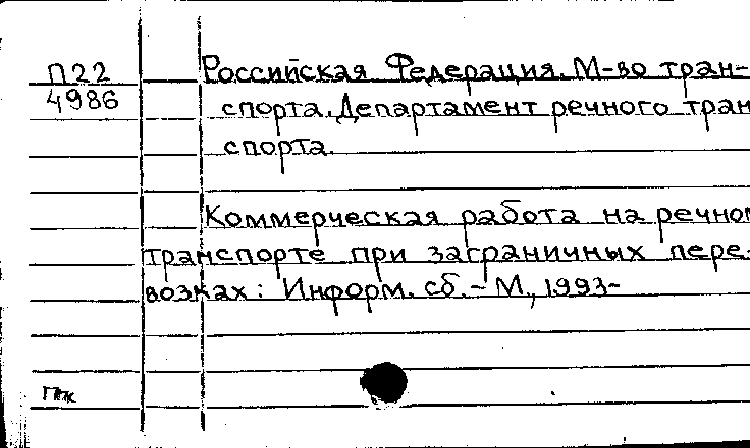 П22
4986
Российская Федерация. М-во тран-
спорта. Департамент речного тран
спорта.
Коммерческая работа на речном
транспорте при заграничных пере-
возках: Информ. сб. - М., 1993-